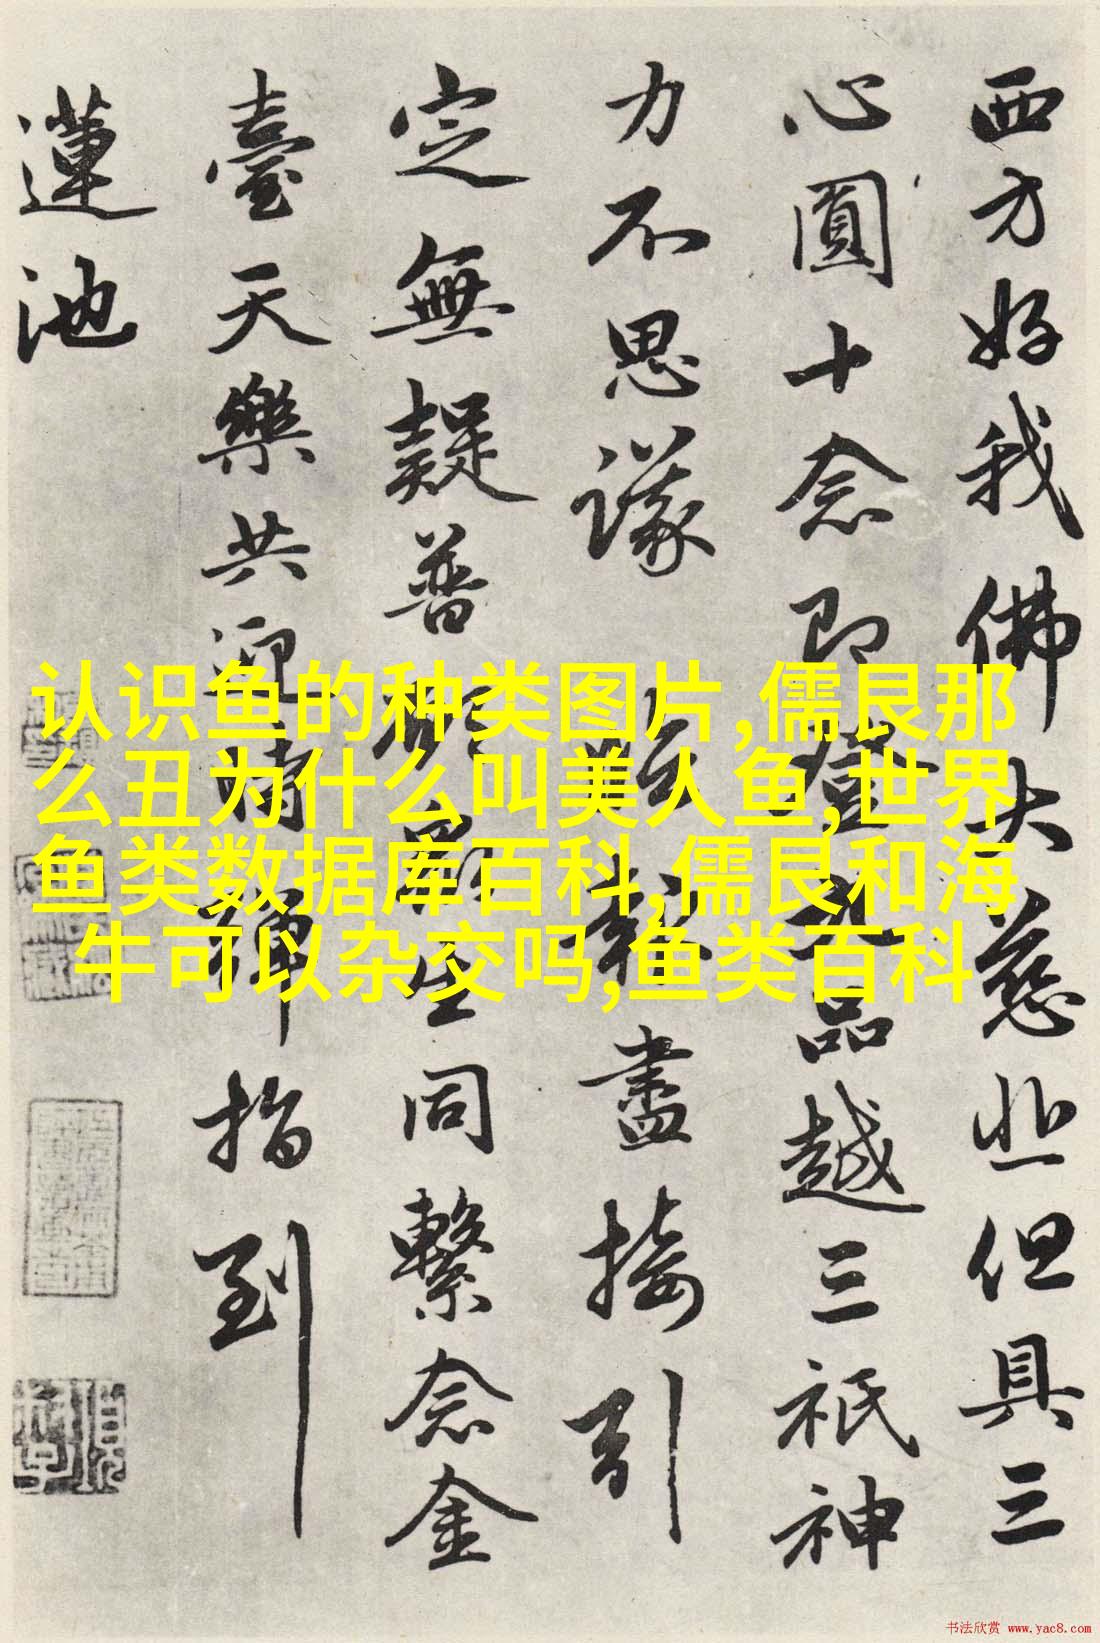 西方好我佛大慈悲但具三
心圓十念即登九品越三祇神
力不思議臨報盡接引
定無疑普願眾生同繫念金
臺天樂共迎時彈指到
蓮池
认识鱼的种类图片,儒艮那
么丑为什么叫美人鱼,世界
鱼类数据库百科,儒艮和海
牛可以杂交吗,鱼类百科
书法欣赏 www.yac8.com